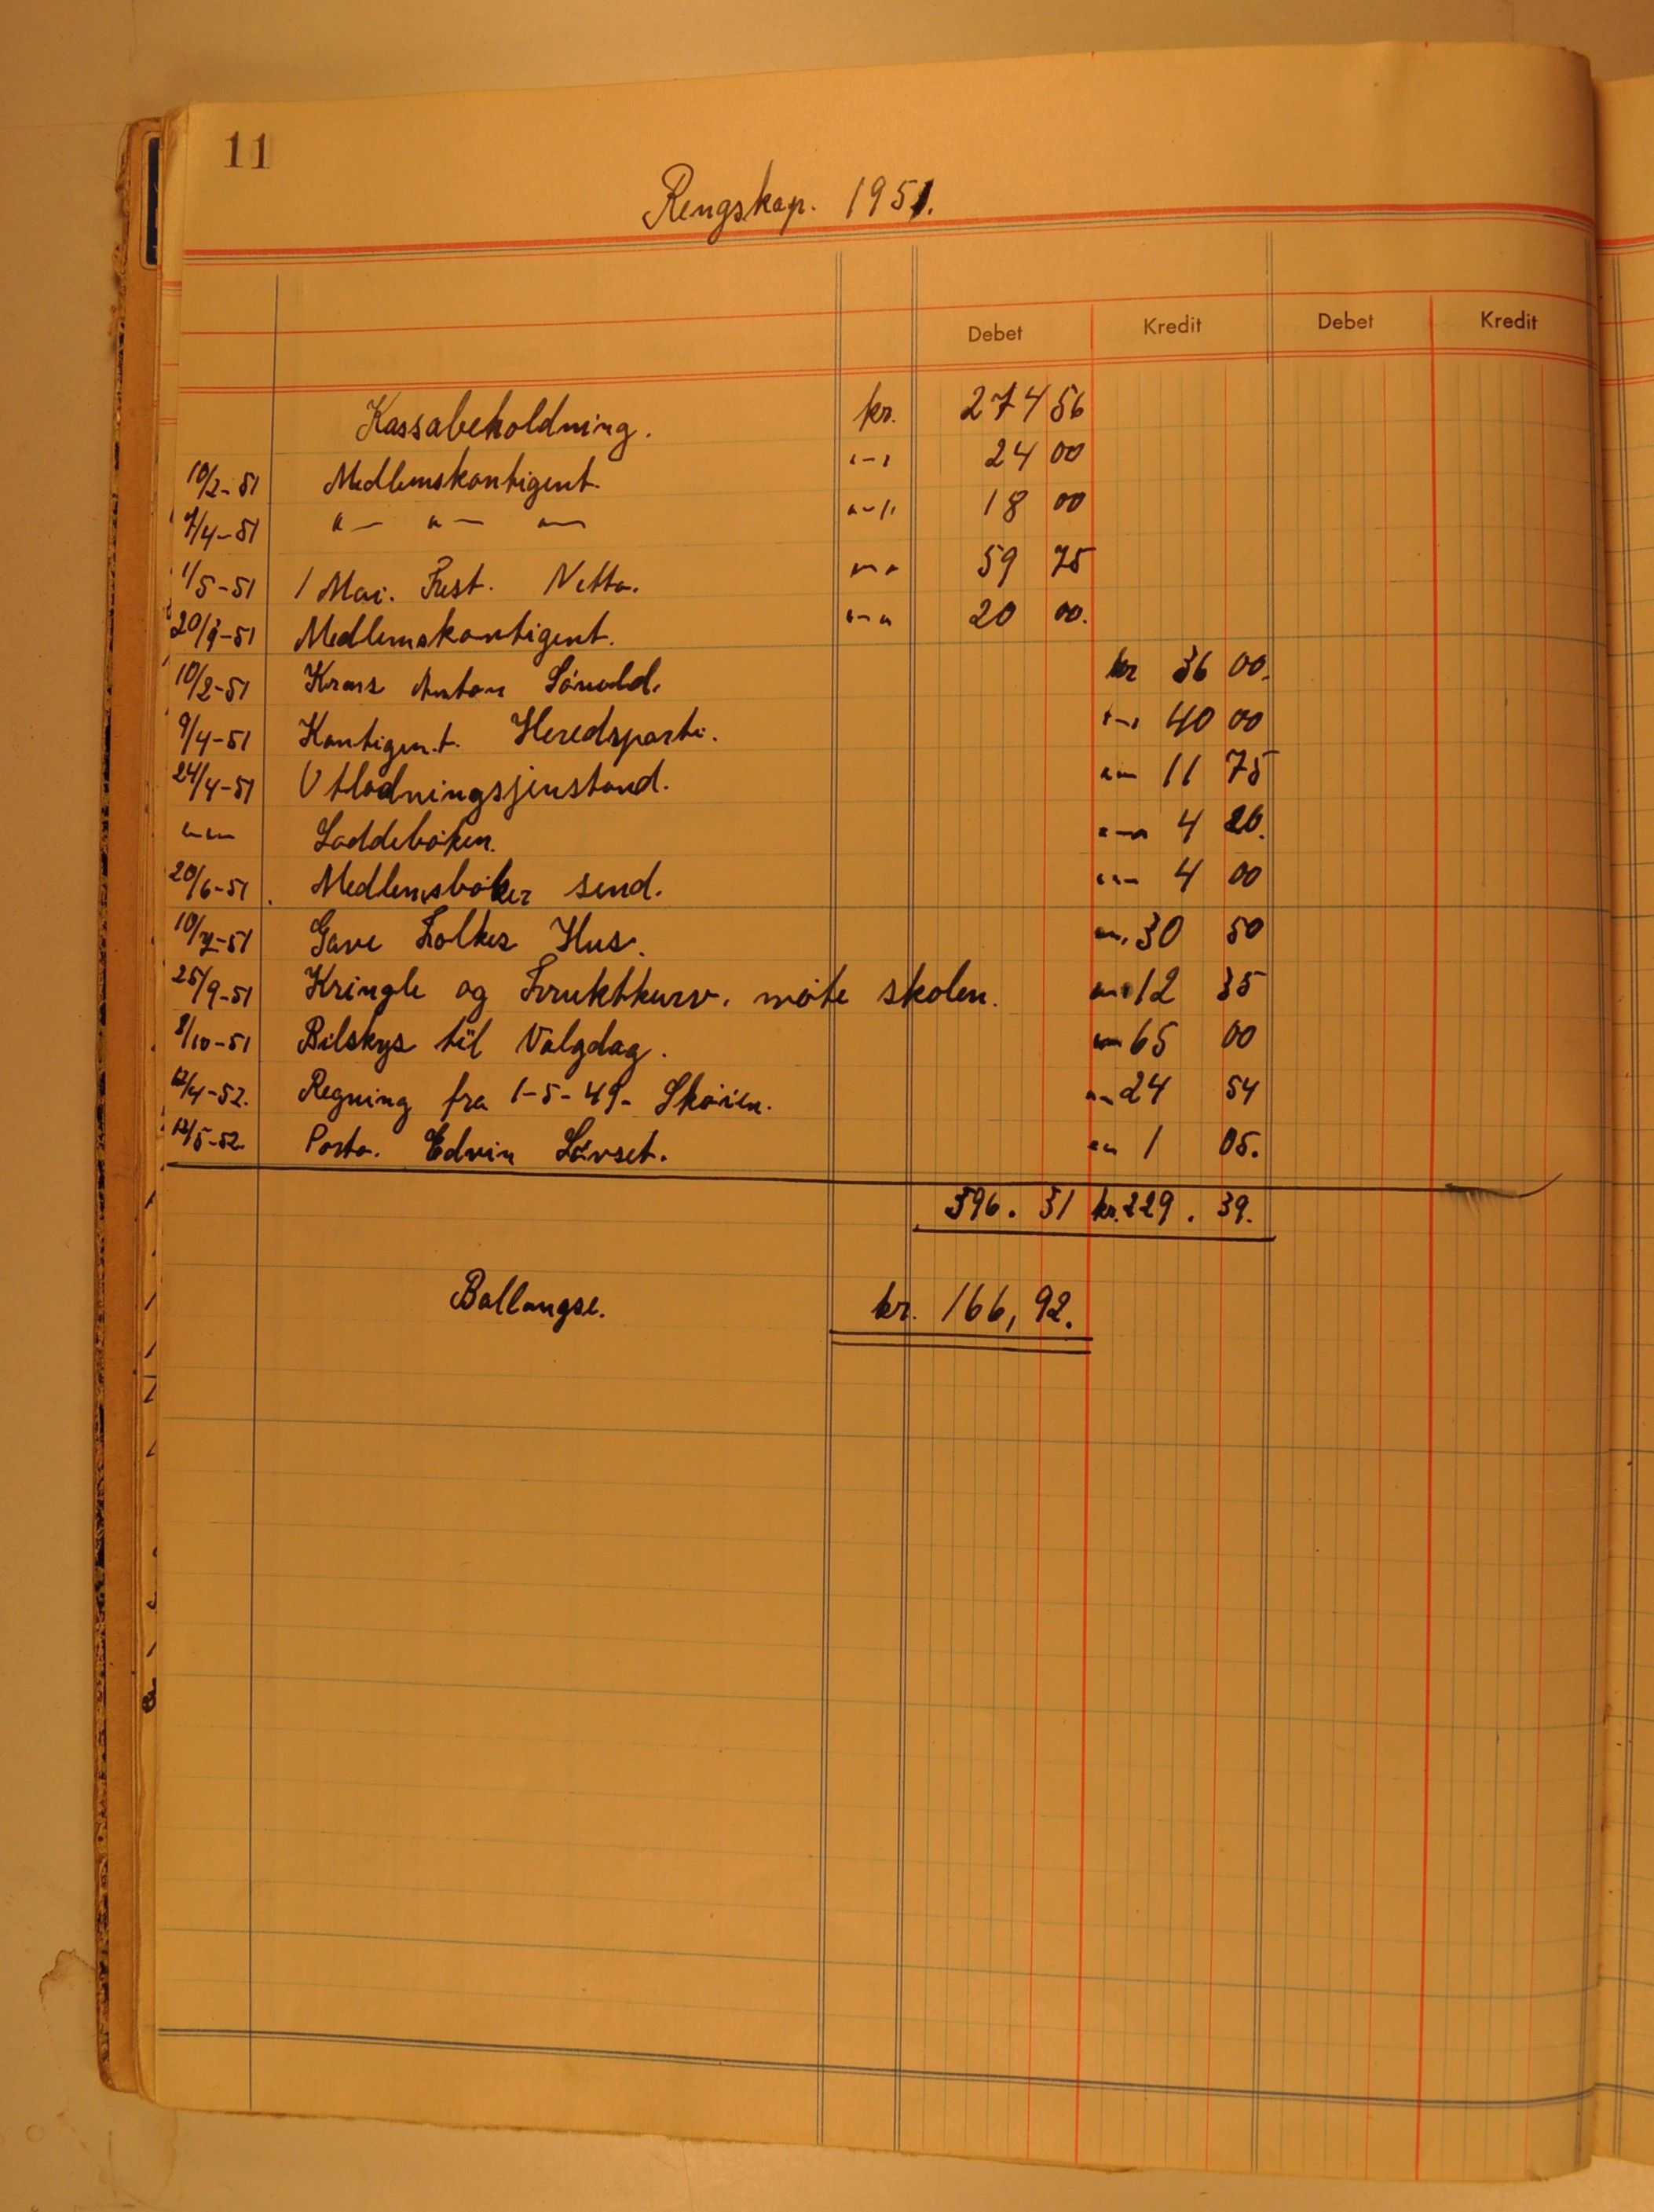 11
Rengskap. 1951.
Debet Kredit Debet Kredit
Kassabeholdning. kr. 274 56
10/2-51 Medlemskontigent. "-" 24 00
7/4-51 "- "- "- "-" 18 00
1/5-51 1 Mai. Fest. Netto. "-" 59 75
20/9-51 Medlemskontigent. "-" 20 00.
10/2-51 Krans Anton kr 36 00.
9/4-51 Kontigent. Heredsparti. "-" 40 00
24/4-51 Utlodningsjenstand. "-" 11 75
"-" Loddebøker. "-" 4 20.
20/6-51. Medlemsbøker send. "-" 4 00
10/7-51 Gave Folkes Hus. "-" 30 50
25/9-51 Kringle og Fruktkurv. møte skolen. "-" 12 35
8/10-51 Bilskys til Valgdag. "-" 65 00
12/4-52. Regning fra 1-5-49- Skøien. "-" 24 54
12/5-52. Porto. Edvin Løvset. "-" 1 05.
396. 31 kr. 229. 39.
Ballangse. kr. 166,92.